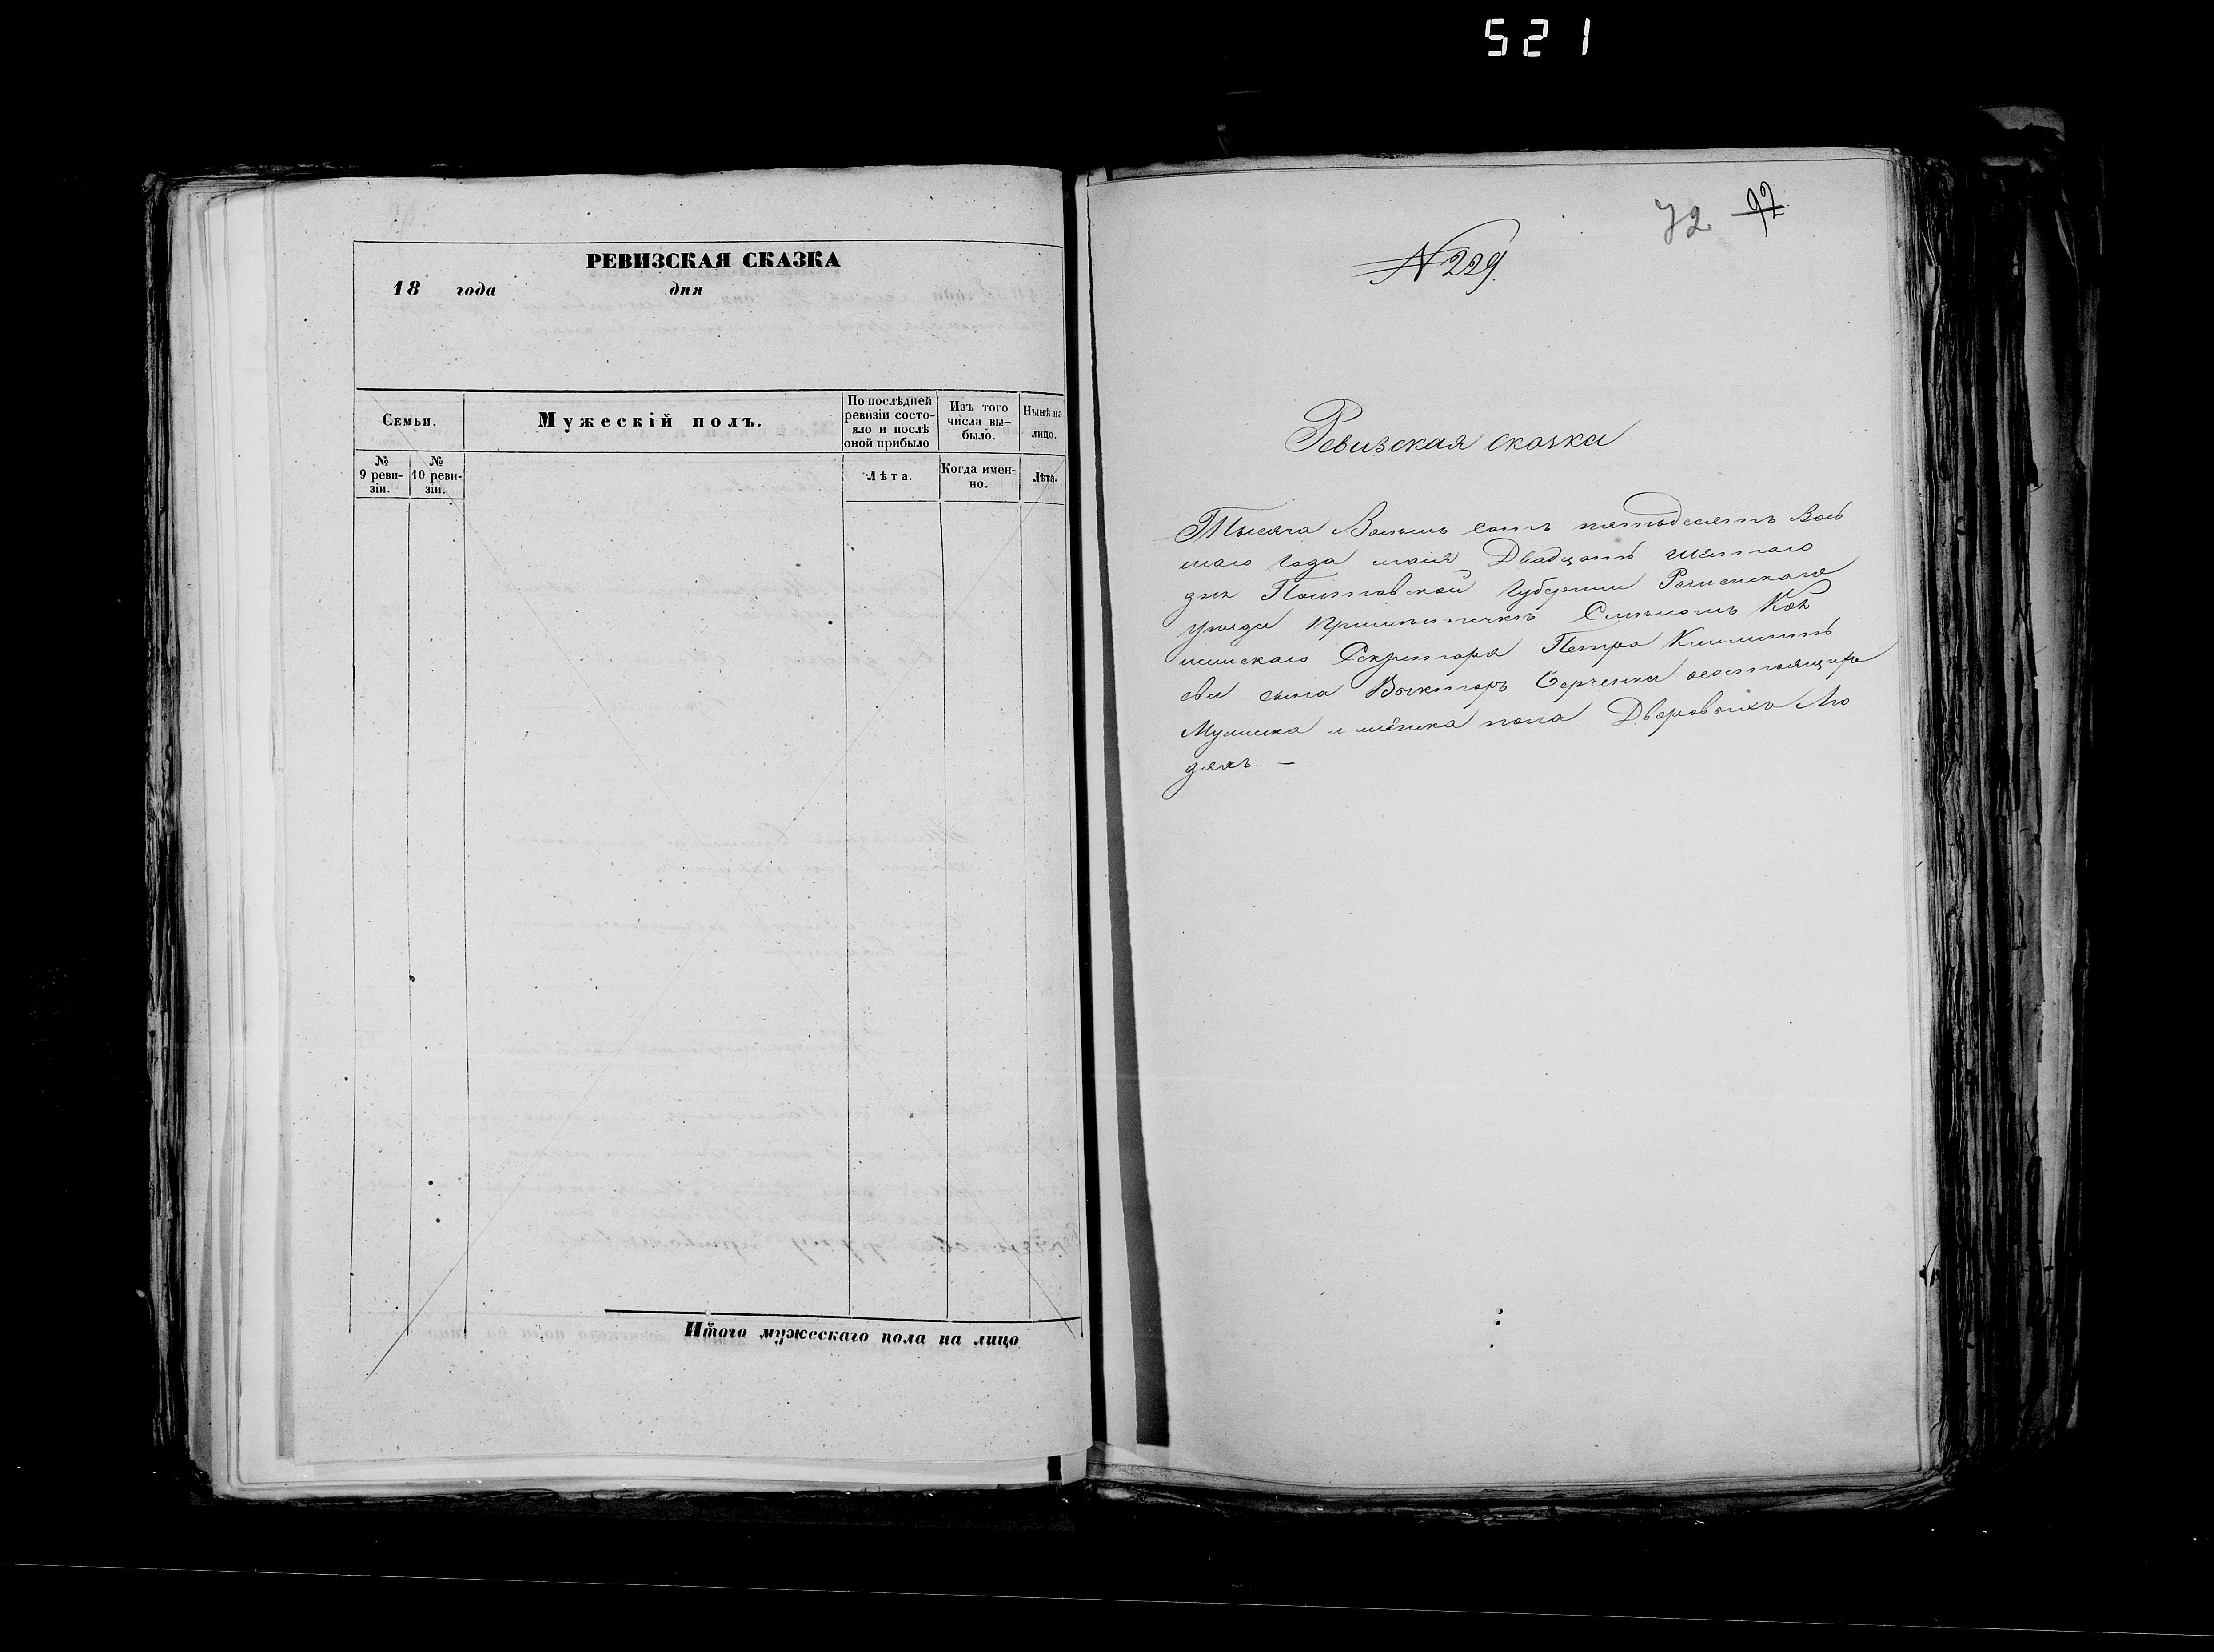 521
РЕВИЗСКАЯ СКАЗКА
18 года дня
Семьи.
Мужескій полъ.
По послѣдней ревизіи состояло и послѣ оной прибыло
Изъ того числа выбыло.
Нынѣ на лицо.
№ 9 ревизіи.
№ 10 ревизіи.
Лѣта.
Когда именно.
Лѣта.
Итого мужескаго пола на лицо
72 92
№ 229.
Ревизская сказка
Тысяча Восемь сотъ пятьдесятъ Вось
маго года маія Двадцать шестаго
дня Полтавской Губерніи Роменскаго
уѣзда Секретаря Петра
сына Серченка состоящихъ
Мужеска и женска пола Дворовыхъ Лю
дяхъ. —